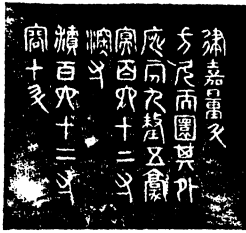 律嘉量斗
方尺而圜其外
庣旁九氂五豪
冥百六十二寸
深寸
積百六十二寸
容十升